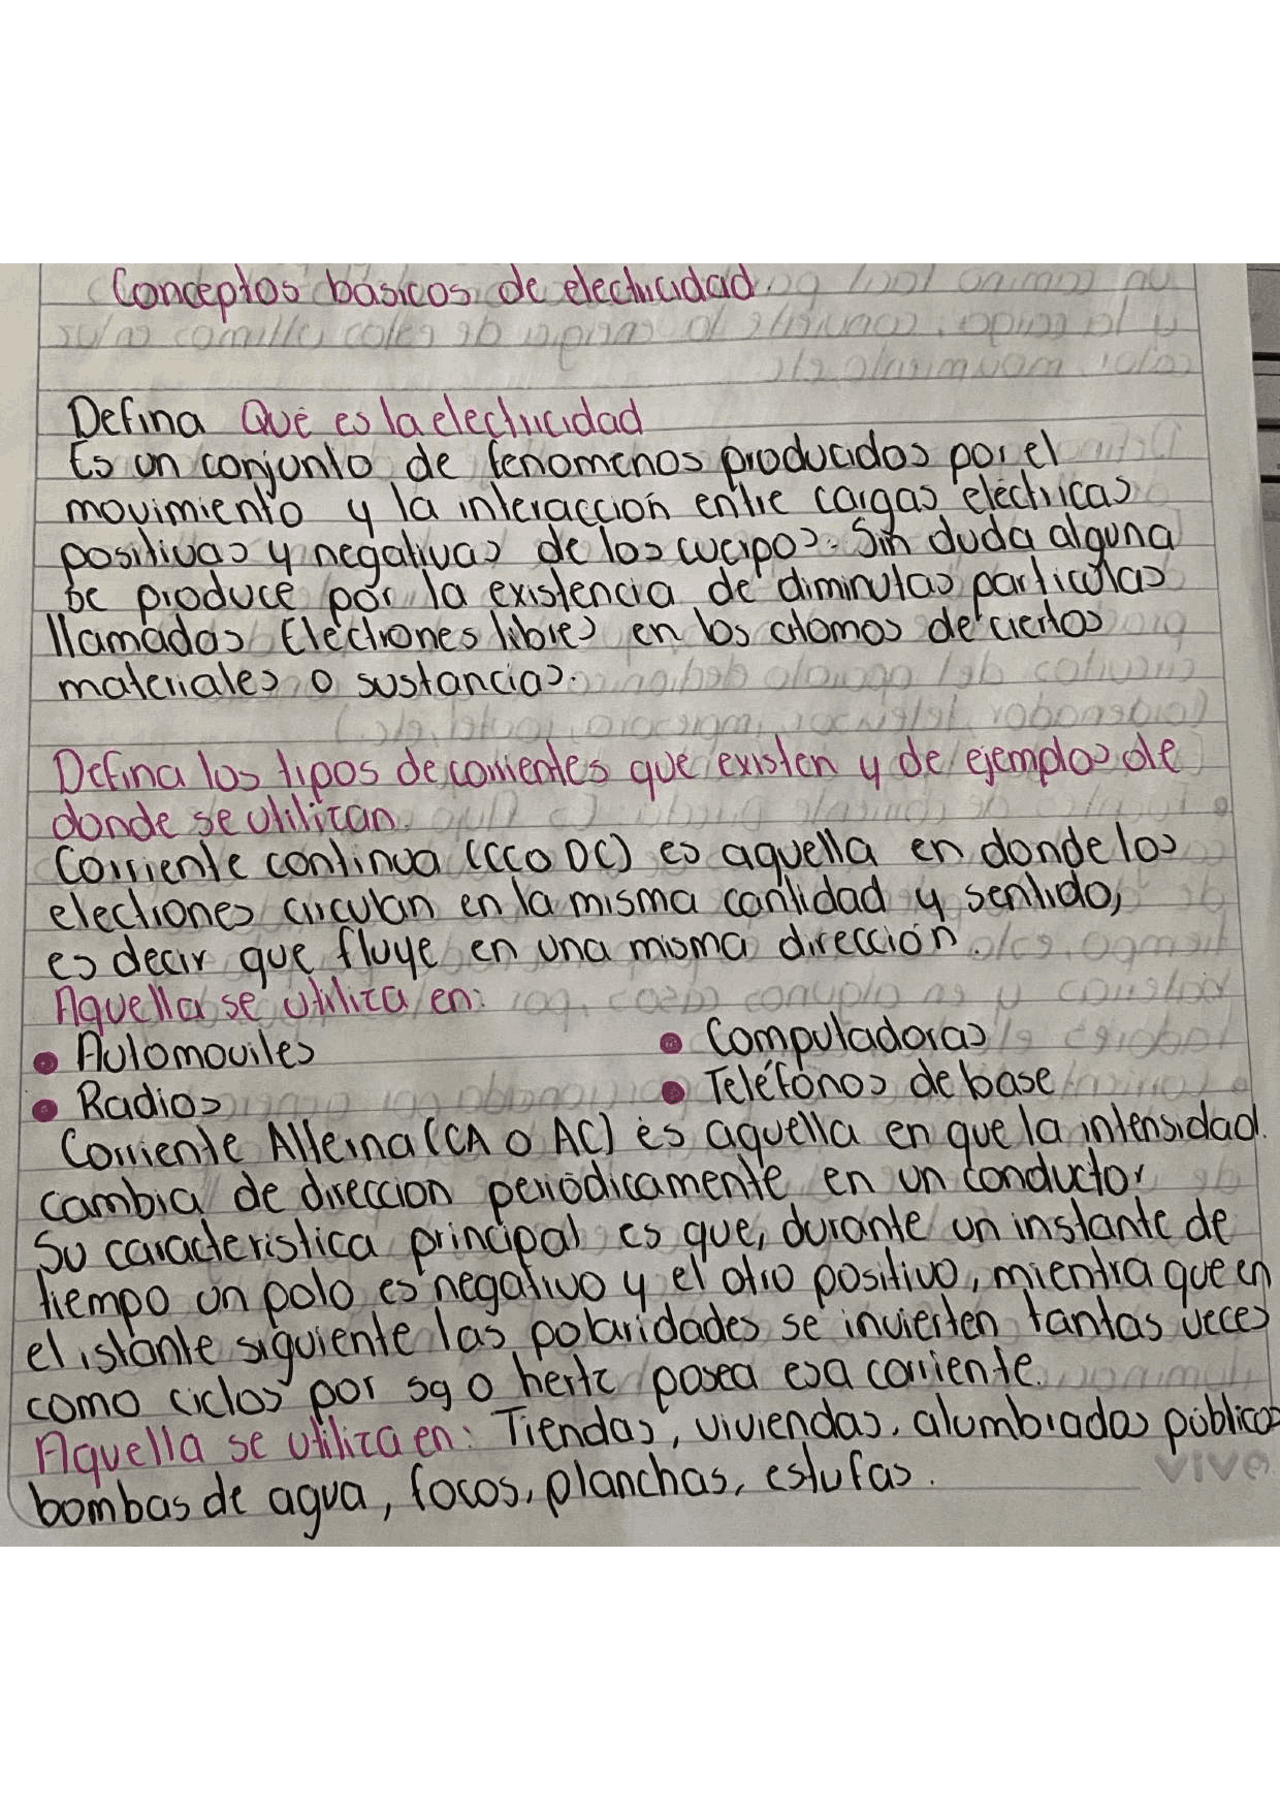 Conceptos básicos de electricidad
Defina Qué es la electricidad
Es un conjunto de fenomenos producidos por el
movimiento y la interaccion entre cargas electricas
positivas y negativas de los cuerpos. Sin duda alguna
se produce por la existencia de diminutas particulas
llamadas Electrones libres en los atomos de ciertos
materiales o sustancias.
Defina los tipos de corrientes que existen y de ejemplos de
donde se utilizan.
Corriente continua (CC o DC) es aquella en donde los
electrones circulan en la misma cantidad y sentido,
es decir que fluye en una misma dirección.
Aquella se utiliza en:
• Automoviles
• Computadoras
• Radios
• Teléfonos de base
Corriente Alterna (CA o AC) es aquella en que la intensidad
cambia de direccion periódicamente en un conductor
Su caracteristica principal es que, durante un instante de
tiempo un polo es negativo y el otro positivo, mientra que en
el istante siguiente las polaridades se invierten tantas veces
como ciclos por sg o hertz posea esa corriente.
Aquella se utiliza en: Tiendas, viviendas, alumbrados públicos
bombas de agua, focos, planchas, estufas.
vive